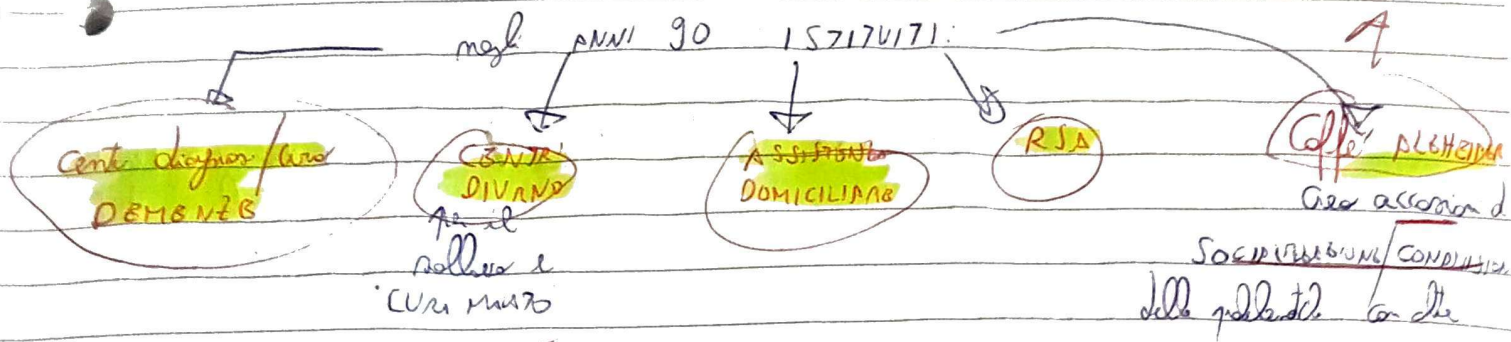 negli ANNI 90 ISTITUITI:
A
Centri diagnosi/cura
DEMENZE
CENTRI
DIURNO
per il
sollievo e
ASSISTENZA
DOMICILIARE
RSA
Caffè ALZHEIMER
Crea occasioni d
SOCIALIZZAZIONE/CONDIVISION
delle con altre